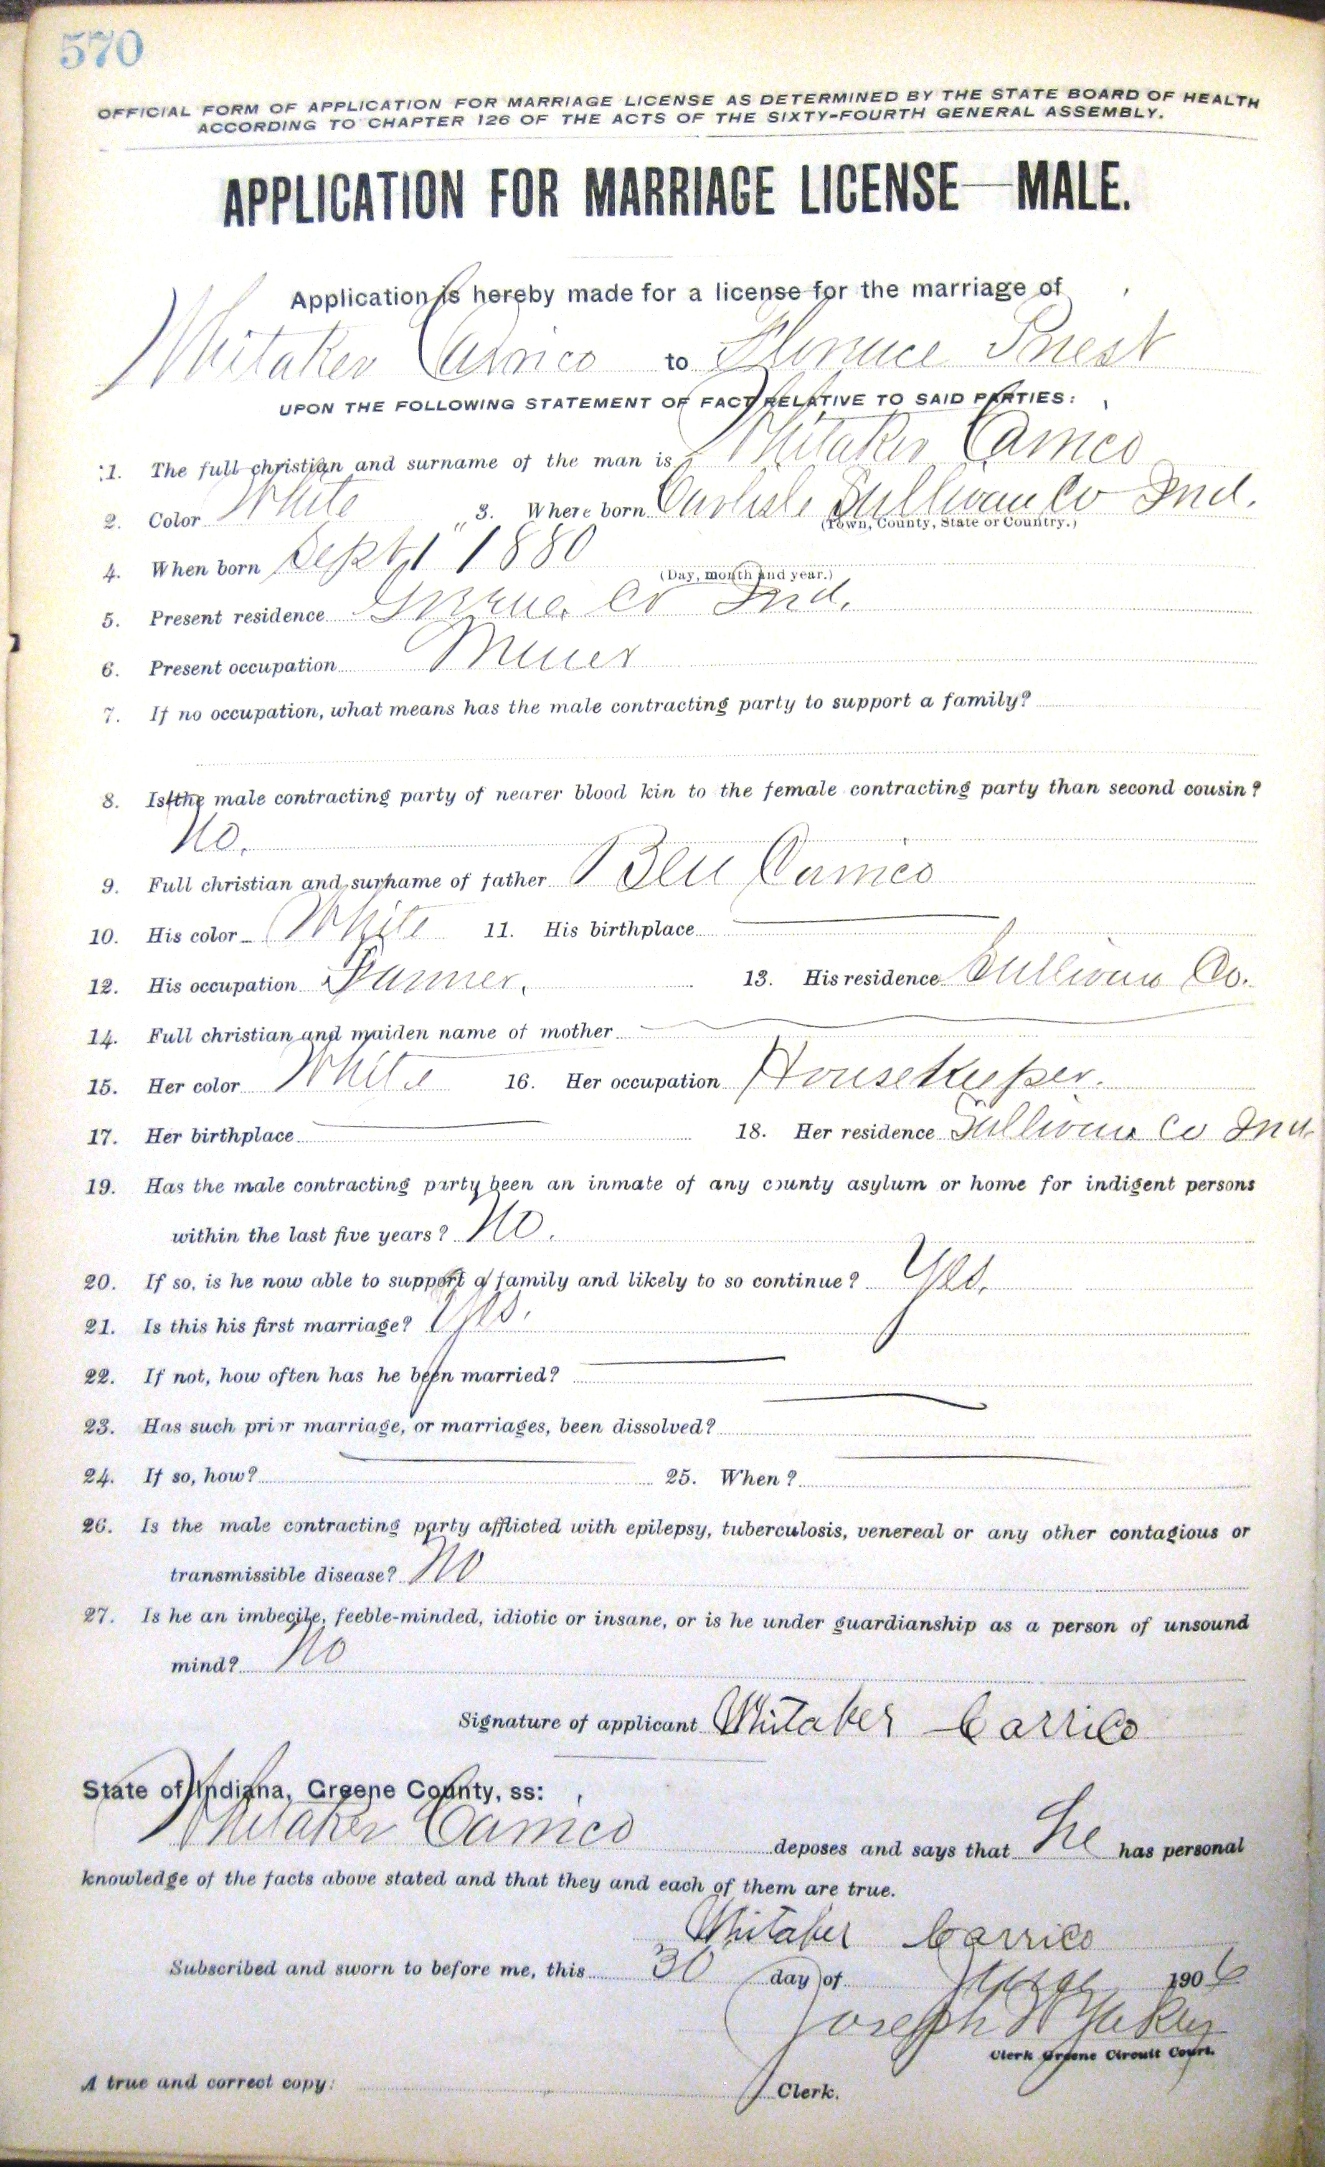 570
OFFICIAL FORM OF APPLICATION FOR MARRIAGE LICENSE AS DETERMINED BY THE STATE BOARD OF HEALTH
ACCORDING TO CHAPTER 126 OF THE ACTS OF THE SIXTY-FOURTH GENERAL ASSEMBLY.
APPLICATION FOR MARRIAGE LICENSE—MALE.
Application is hereby made for a license for the marriage of
Whitaker Carrico to Florence Priest
UPON THE FOLLOWING STATEMENT OF FACT RELATIVE TO SAID PARTIES:
1. The full christian and surname of the man is Whitaker Carrico
2. Color White 3. Where born Carlisle Sullivan Co Ind.
(Town, County, State or Country.)
4. When born Sept 1" 1880
(Day, month and year.)
5. Present residence Greene Co Ind.
6. Present occupation Miner
7. If no occupation, what means has the male contracting party to support a family?
8. Is the male contracting party of nearer blood kin to the female contracting party than second cousin?
No.
9. Full christian and surname of father Ben Carrico
10. His color White 11. His birthplace
12. His occupation Farmer. 13. His residence Sullivan Co.
14. Full christian and maiden name of mother
15. Her color White 16. Her occupation Housekeeper.
17. Her birthplace 18. Her residence Sullivan Co Ind.
19. Has the male contracting party been an inmate of any county asylum or home for indigent persons
within the last five years? No.
20. If so, is he now able to support a family and likely to so continue? Yes.
21. Is this his first marriage? Yes.
22. If not, how often has he been married?
23. Has such prior marriage, or marriages, been dissolved?
24. If so, how? 25. When?
26. Is the male contracting party afflicted with epilepsy, tuberculosis, venereal or any other contagious or
transmissible disease? No
27. Is he an imbecile, feeble-minded, idiotic or insane, or is he under guardianship as a person of unsound
mind? No
Signature of applicant Whitaker Carrico
State of Indiana, Greene County, ss:
Whitaker Carrico deposes and says that he has personal
knowledge of the facts above stated and that they and each of them are true.
Whitaker Carrico
Subscribed and sworn to before me, this 30 day of June 1906
Joseph W Yakey
Clerk Greene Circuit Court.
A true and correct copy: Clerk.